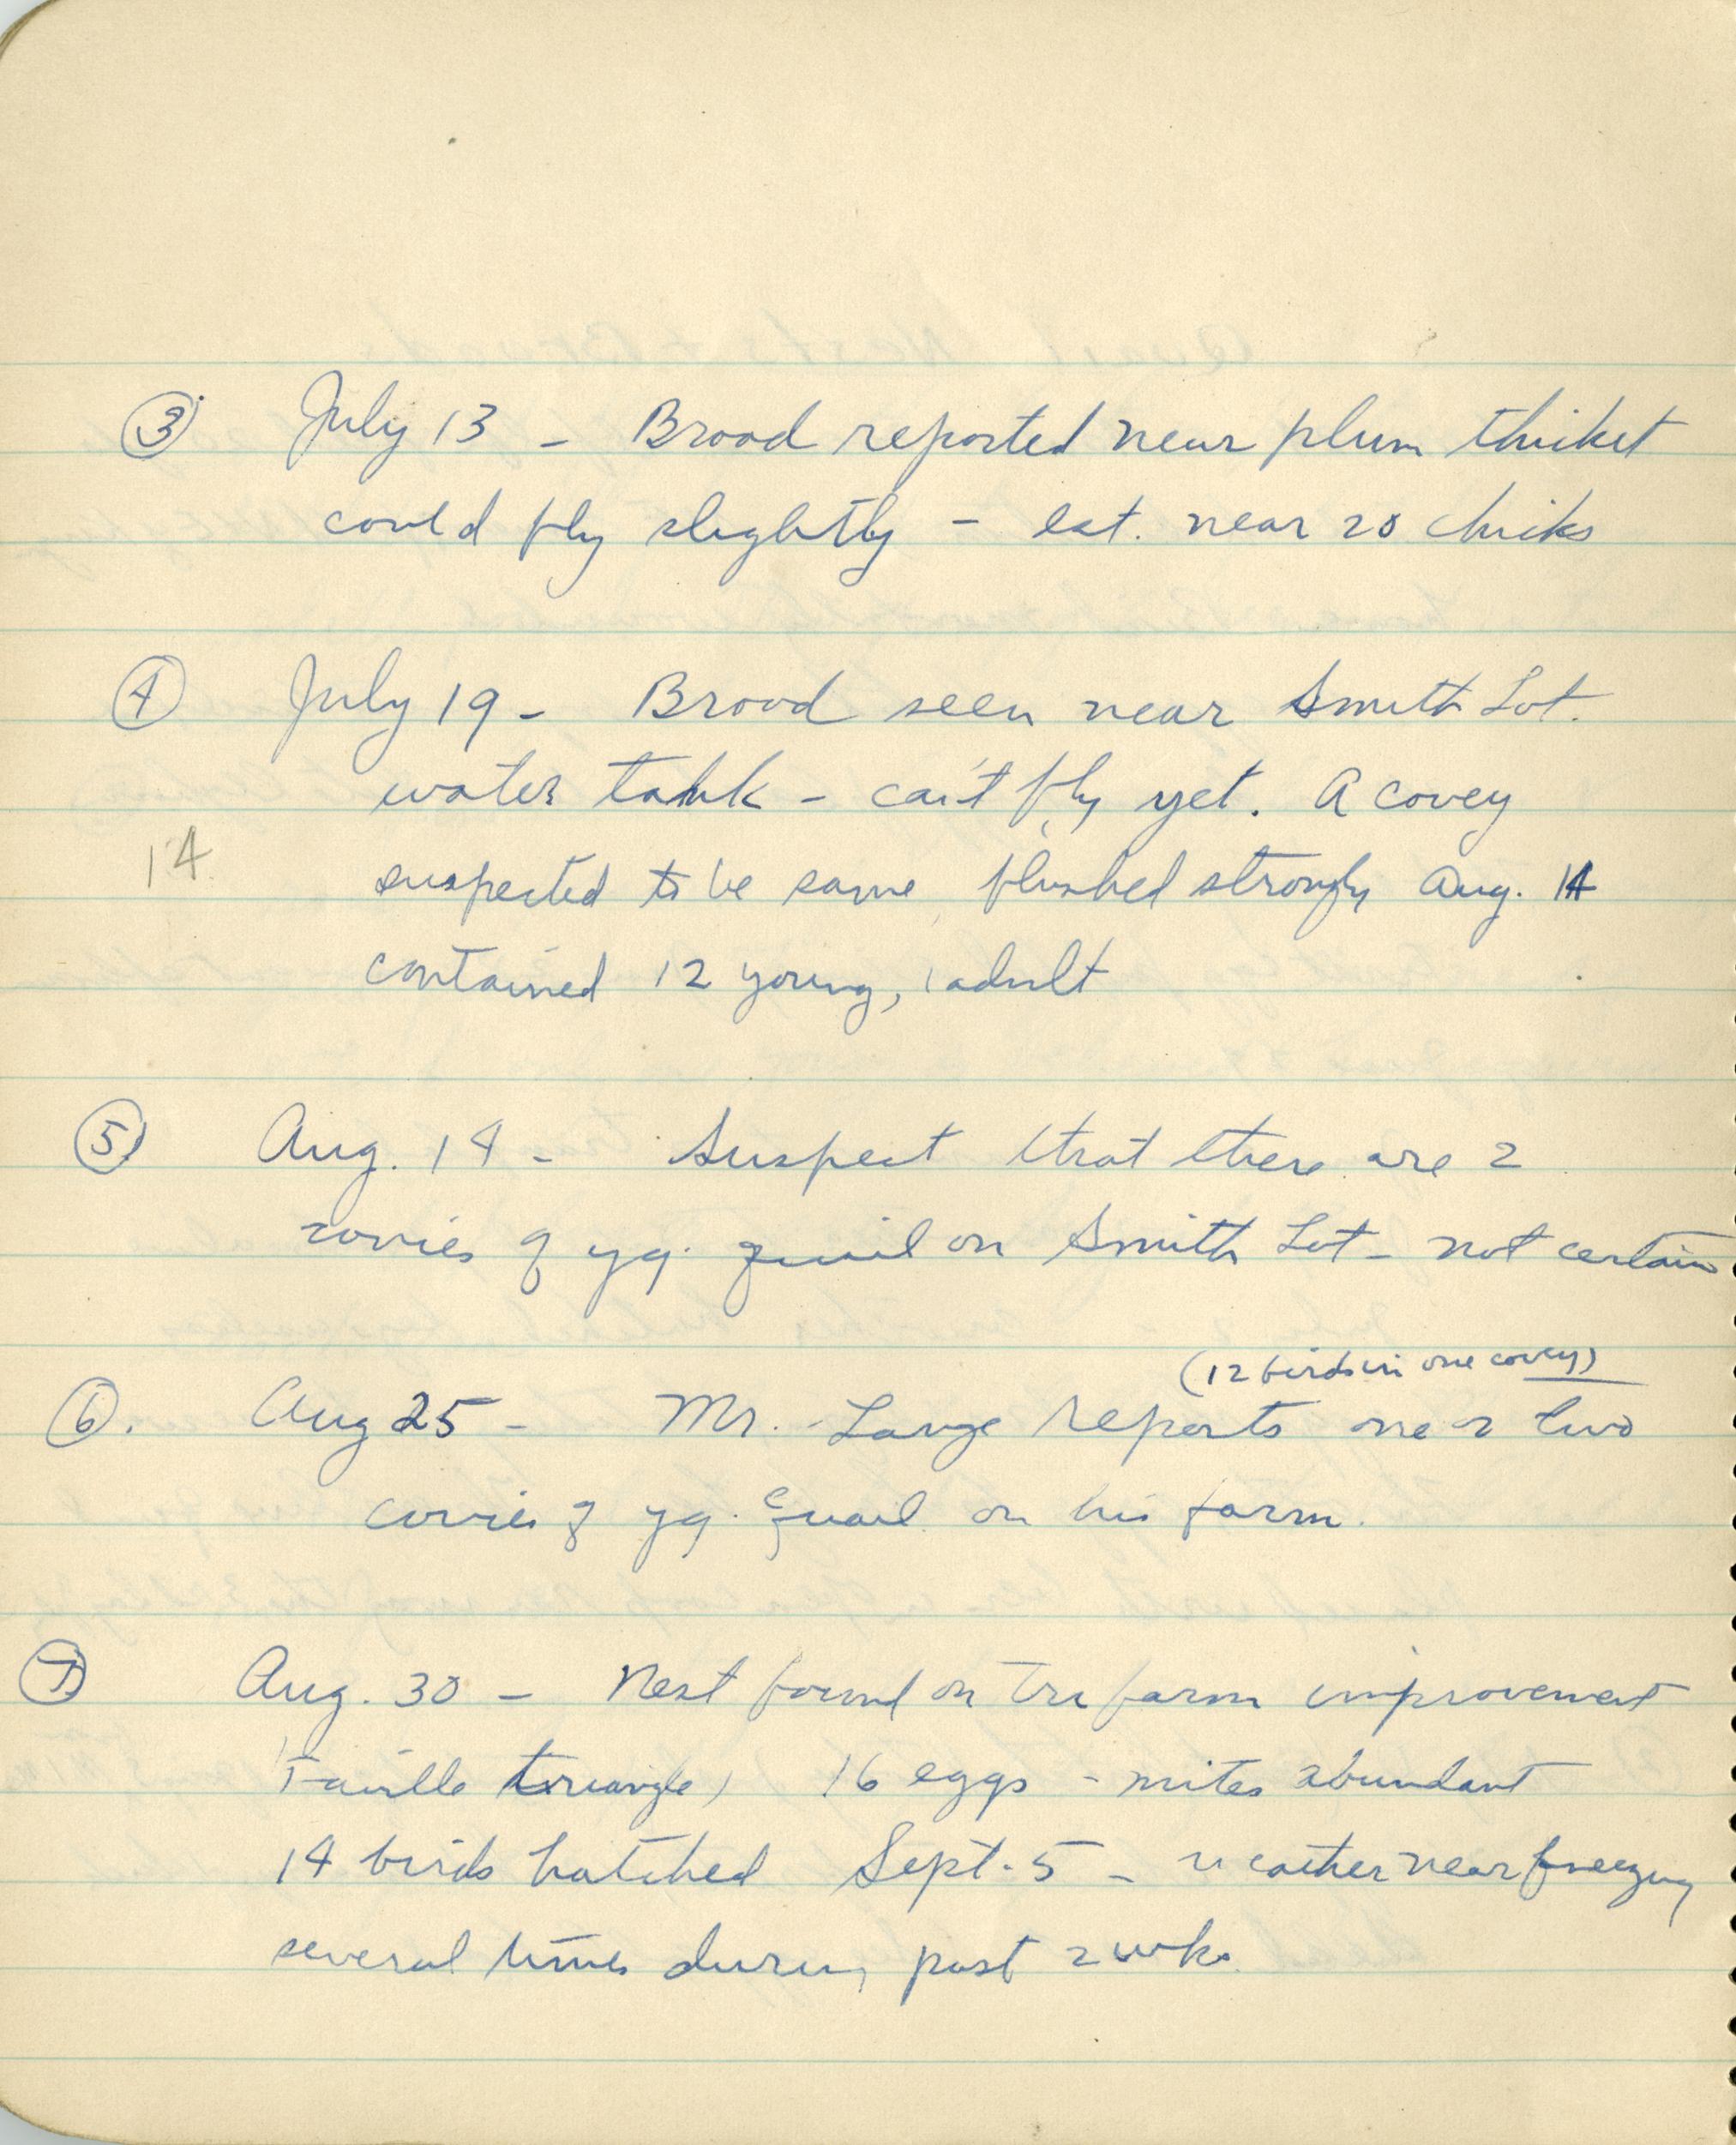 ③ July 13 - Brood reported near plum thicket
could fly slightly - est. near 20 chicks
④ July 19 - Brood seen near Smith Lot.
water tank - can't fly yet. A covey
14 suspected to be same flushed strongly Aug. 14
contained 12 young, 1 adult
⑤ Aug. 14 - Suspect that there are 2
covies of yg. quail on Smith Lot - not certain
(12 birds in one covey)
⑥. Aug 25 - Mr. Lange reports one or two
covies of yg. quail on his farm.
⑦ Aug. 30 - Nest found on farm improvement
Faville triangle) 16 eggs - mites abundant
14 birds hatched Sept. 5 - weather near freezing
several times during past 2 wks.